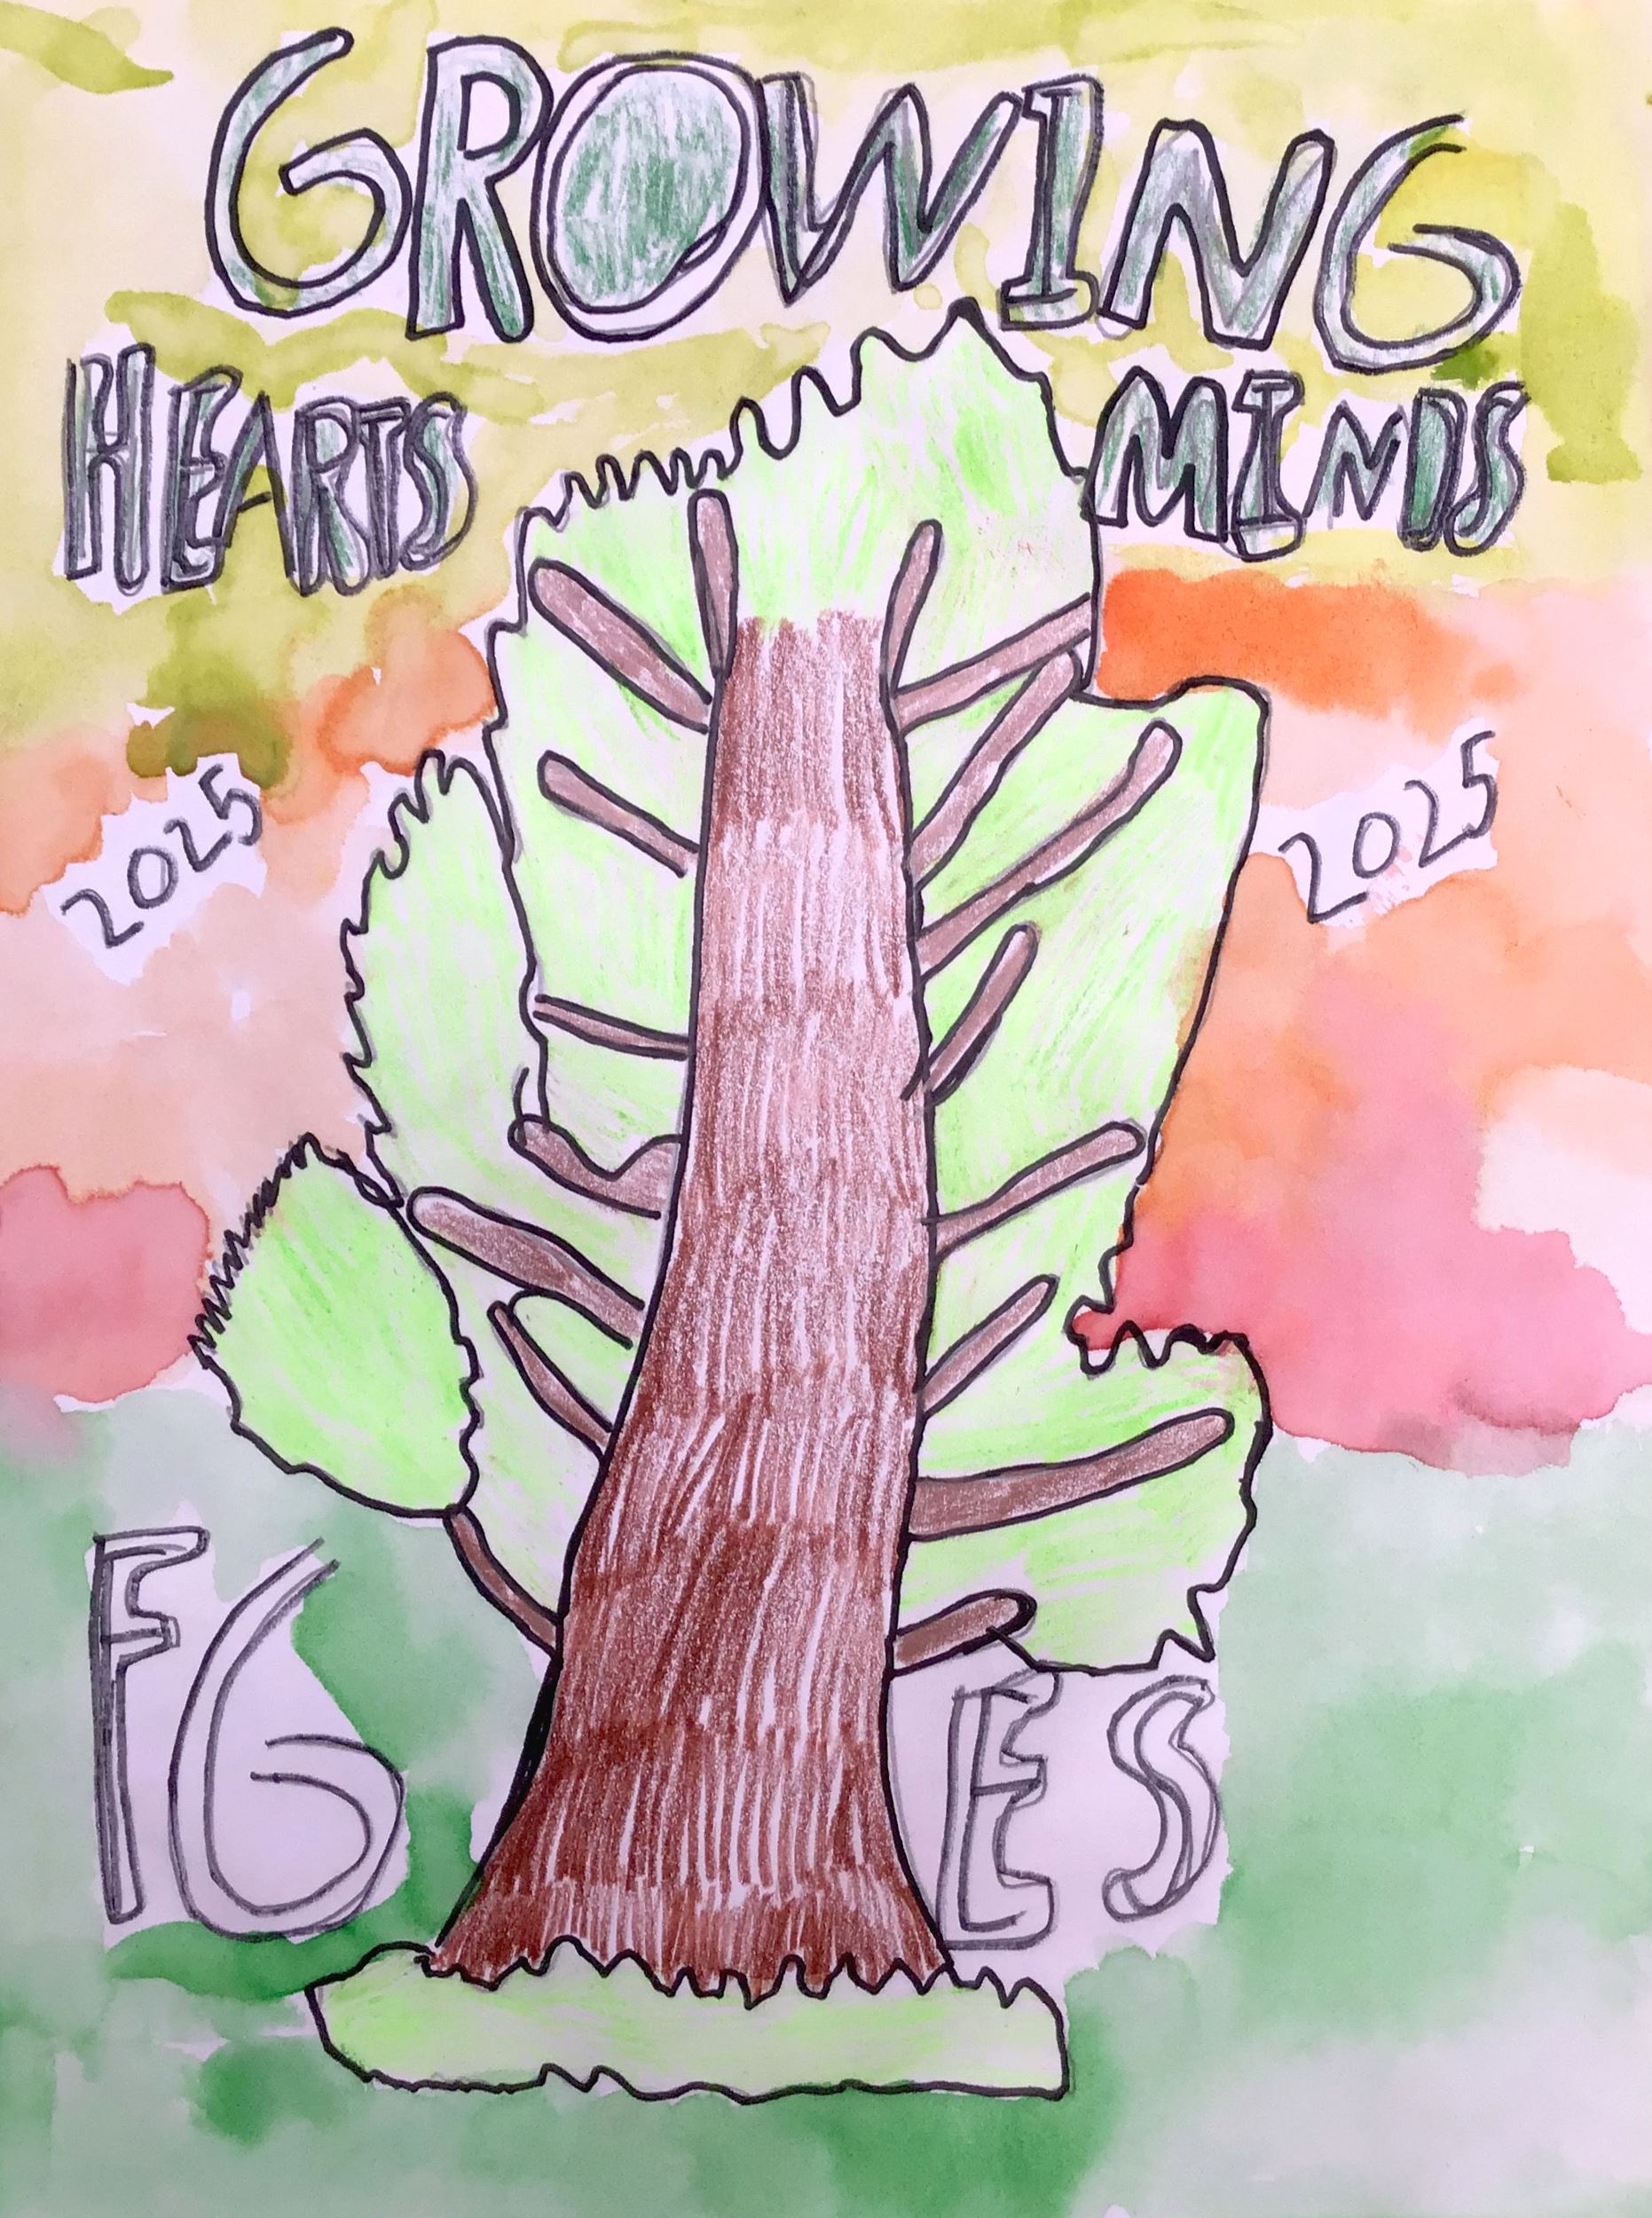 GROWING
HEARTS MINDS
2025 2025
FG ES